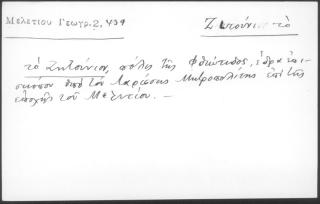 Μελετίου Γεωγρ. 2, 439
Ζητούνιον τὸ
τὸ Ζητούνιον, πόλις τῆς Φθιώτιδος, ἕδρα ἐπι-
σκόπου ὑπὸ τὸν Λαρίσσης Μητροπολίτην ἐπὶ τῆς
ἐποχῆς τοῦ Μελετίου. —